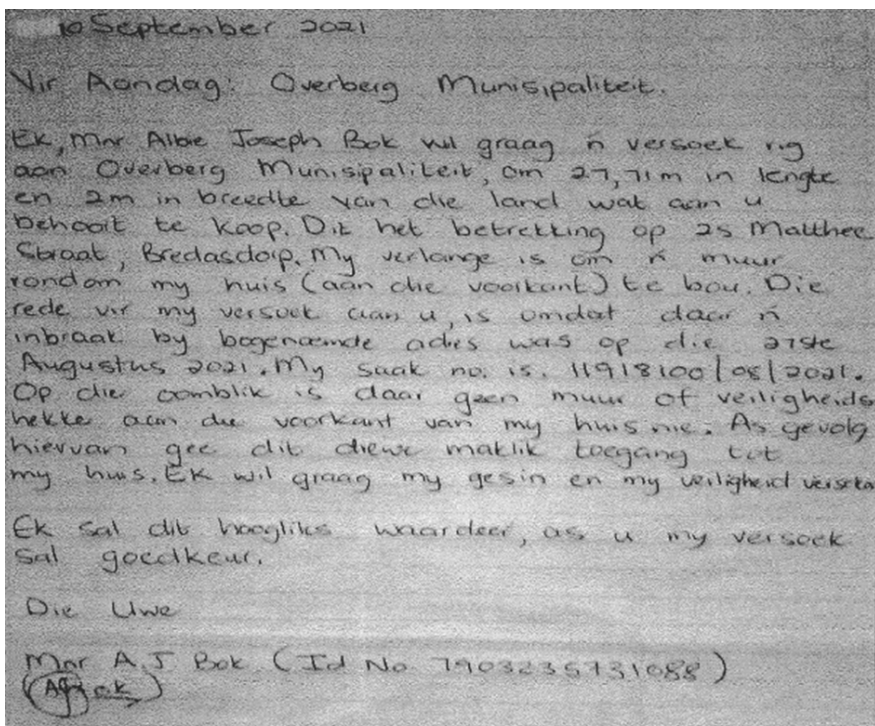 10 September 2021
Vir Aandag: Overberg Munisipaliteit.
Ek, Mnr Albie Joseph Bok wil graag 'n versoek rig
aan Overberg Munisipaliteit, om 27,71m in lengte
en 2m in breedte van die land wat aan u
behoort te koop. Dit het betrekking op 25 Matthee
Straat, Bredasdorp. My verlange is om 'n muur
rondom my huis (aan die voorkant) te bou. Die
rede vir my versoek aan u, is omdat daar 'n
inbraak by bogenoemde adres was op die 27ste
Augustus 2021. My saak no. is. 11918100/08/2021.
Op die oomblik is daar geen muur of veiligheids
hekke aan die voorkant van my huis nie. As gevolg
hiervan gee dit diewe maklik toegang tot
my huis. Ek wil graag my gesin en my veiligheid verseker
Ek sal dit hoogliks waardeer, as u my versoek
sal goedkeur.
Die Uwe
Mnr A.J Bok (Id No 7903235731088)